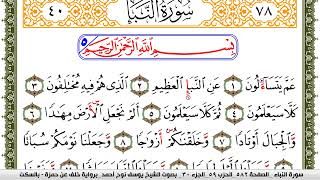 ٧٨ سُورَةُ النَّبَإِ ٤٠
بِسْمِ اللَّهِ الرَّحْمَٰنِ الرَّحِيمِ
عَمَّ يَتَسَاءَلُونَ ١ عَنِ النَّبَإِ الْعَظِيمِ ٢ الَّذِي هُمْ فِيهِ مُخْتَلِفُونَ ٣
كَلَّا سَيَعْلَمُونَ ٤ ثُمَّ كَلَّا سَيَعْلَمُونَ ٥ أَلَمْ نَجْعَلِ الْأَرْضَ مِهَادًا ٦
وَالْجِبَالَ أَوْتَادًا ٧ وَخَلَقْنَاكُمْ أَزْوَاجًا ٨ وَجَعَلْنَا نَوْمَكُمْ سُبَاتًا
سورة النبإ الصفحة ٥٨٢ الحزب ٥٩ الجزء ٣٠ بصوت الشيخ يوسف نوح أحمد برواية خلف عن حمزة - بالسكت